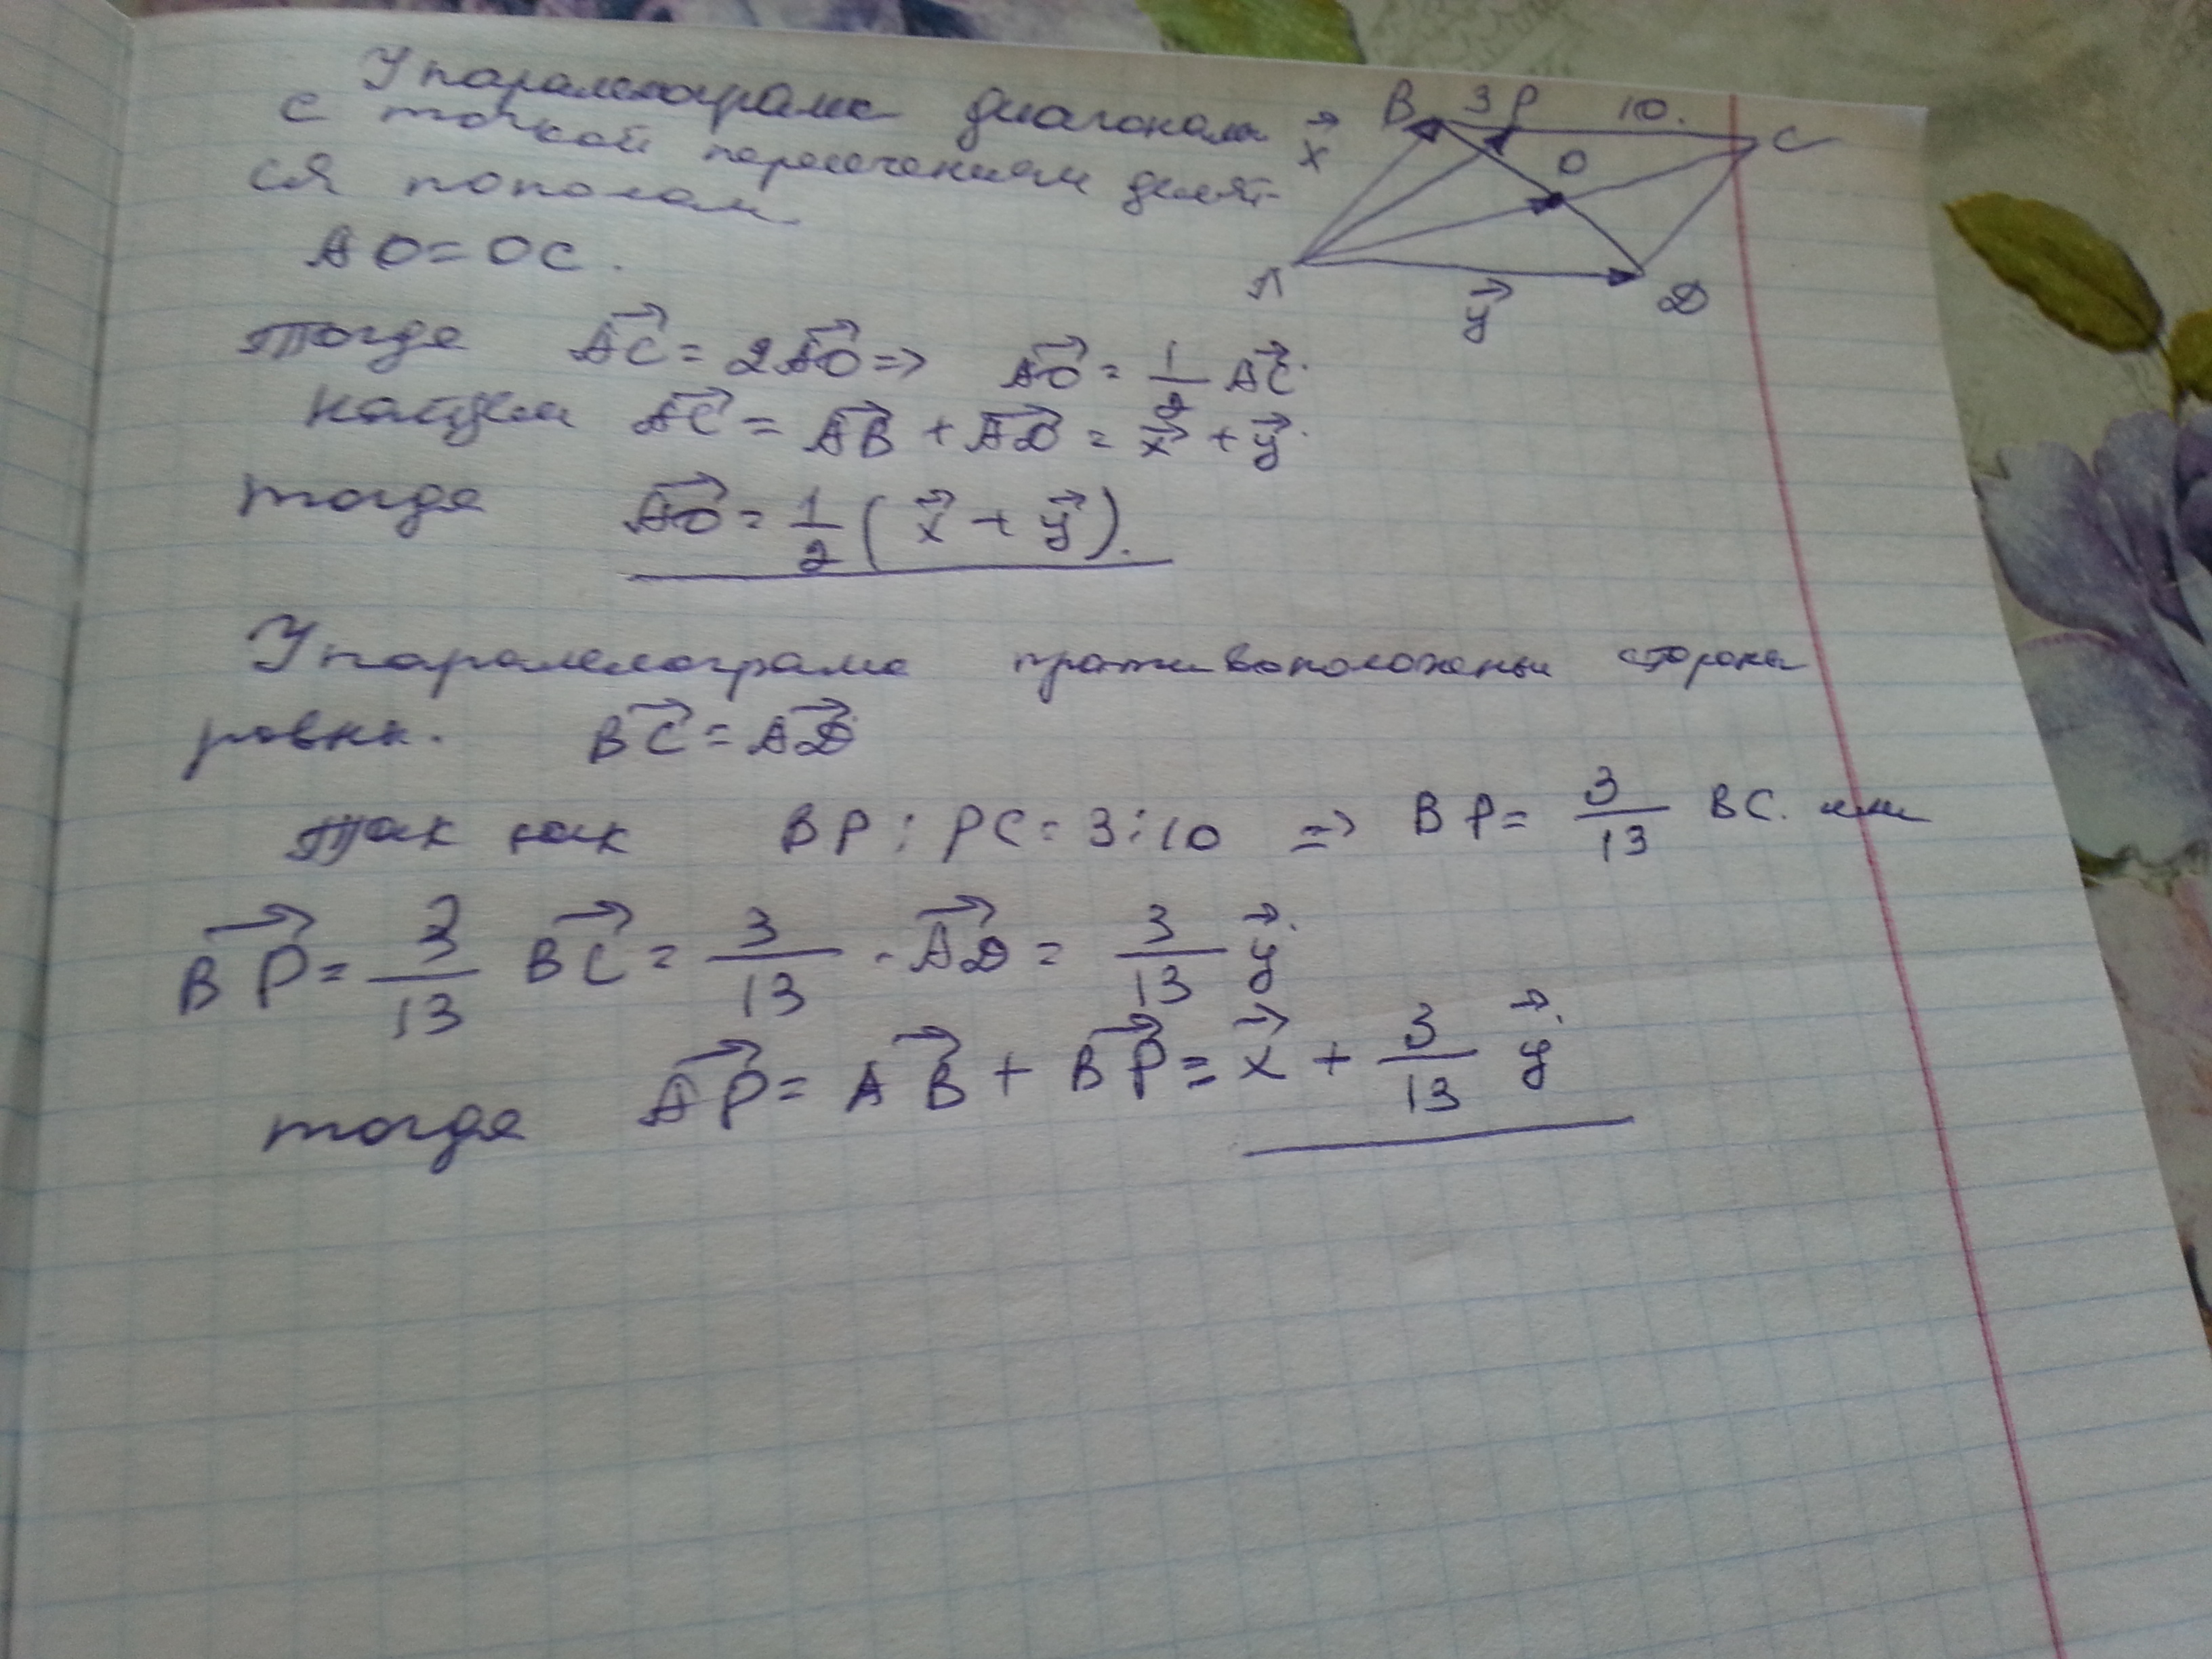 У паралелограма диагонали
с точкой пересечением делят-
ся пополам
AO=OC.
B 3 P 10. C
x⃗
O
A
y⃗
D
тогда AC⃗ = 2AO⃗ => AO⃗ = 1/2 AC⃗.
найдем AC⃗ = AB⃗ + AD⃗ = x⃗ + y⃗.
тогда AO⃗ = 1/2 ( x⃗ + y⃗ ).
У паралелограма противоположеные стороны
равны. BC⃗ = AD⃗
так как BP : PC = 3 : 10 => BP = 3/13 BC. или
BP⃗ = 3/13 BC⃗ = 3/13 · AD⃗ = 3/13 y⃗.
тогда AP⃗ = AB⃗ + BP⃗ = x⃗ + 3/13 y⃗.